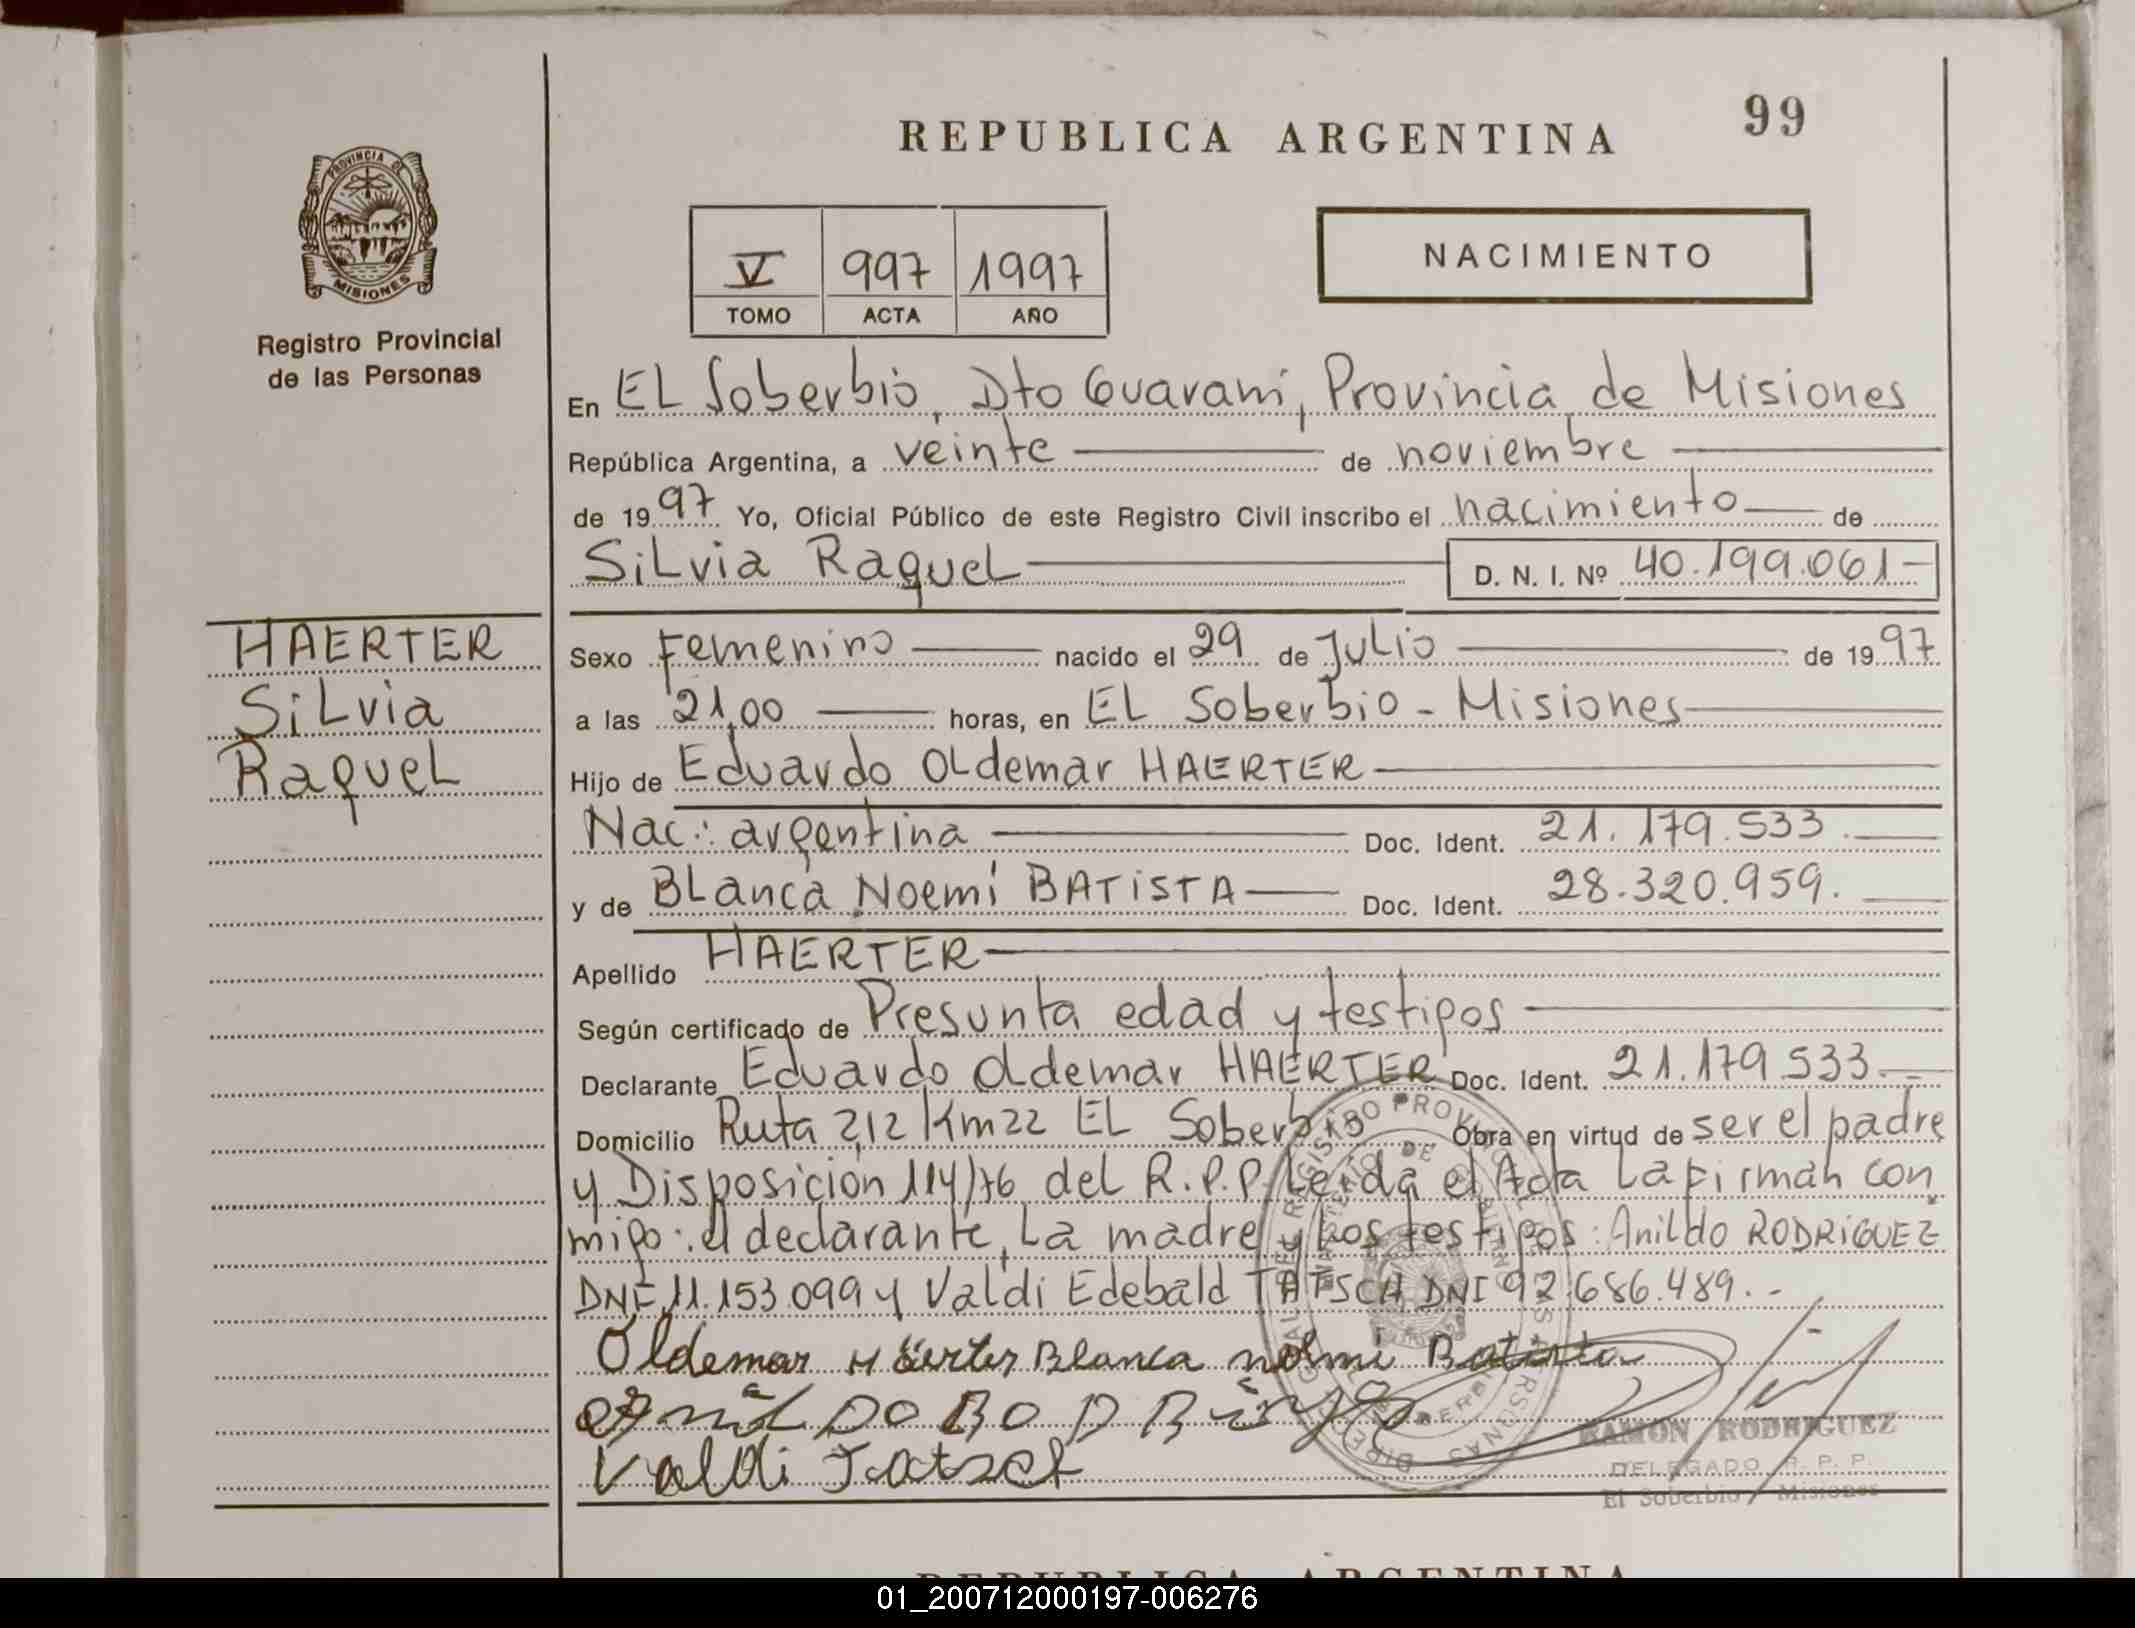 99
REPUBLICA ARGENTINA
PROVINCIA DE
MISIONES
Registro Provincial
de las Personas
V 997 1997
TOMO ACTA AÑO
NACIMIENTO
En EL Soberbio, Dto Guaraní, Provincia de Misiones
República Argentina, a veinte de noviembre
de 1997 Yo, Oficial Público de este Registro Civil inscribo el nacimiento de
SiLvia RaqueL D. N. I. Nº 40.199.061-
HAERTER
SiLvia
RaqueL
Sexo Femenino nacido el 29 de JuLio de 1997
a las 21,00 horas, en EL Soberbio - Misiones
Hijo de Eduardo OLdemar HAERTER
Nac: argentina Doc. Ident. 21.179.533.
y de BLanca Noemí BATiSTA Doc. Ident. 28.320.959.
Apellido HAERTER
Según certificado de Presunta edad y testigos
Declarante Eduardo Oldemar HAERTER Doc. Ident. 21.179.533.
Domicilio Ruta 212 Km22 EL Soberbio Obra en virtud de ser el padre
y Disposición 114/76 del R.P.P. Leída el Acta La firman con
migo: el declarante, La madre y Los testigos: Anildo RODRiGUEZ
DNI 11.153.099 y Valdi Edebald TATSCH DNI 92.686.489.-
Oldemar Haerter Blanca noemi Batista
Valdi Tatsch
RAMON RODRIGUEZ
DELEGADO R. P. P.
El Soberbio Misiones
REPUBLICA ARGENTINA
01_200712000197-006276